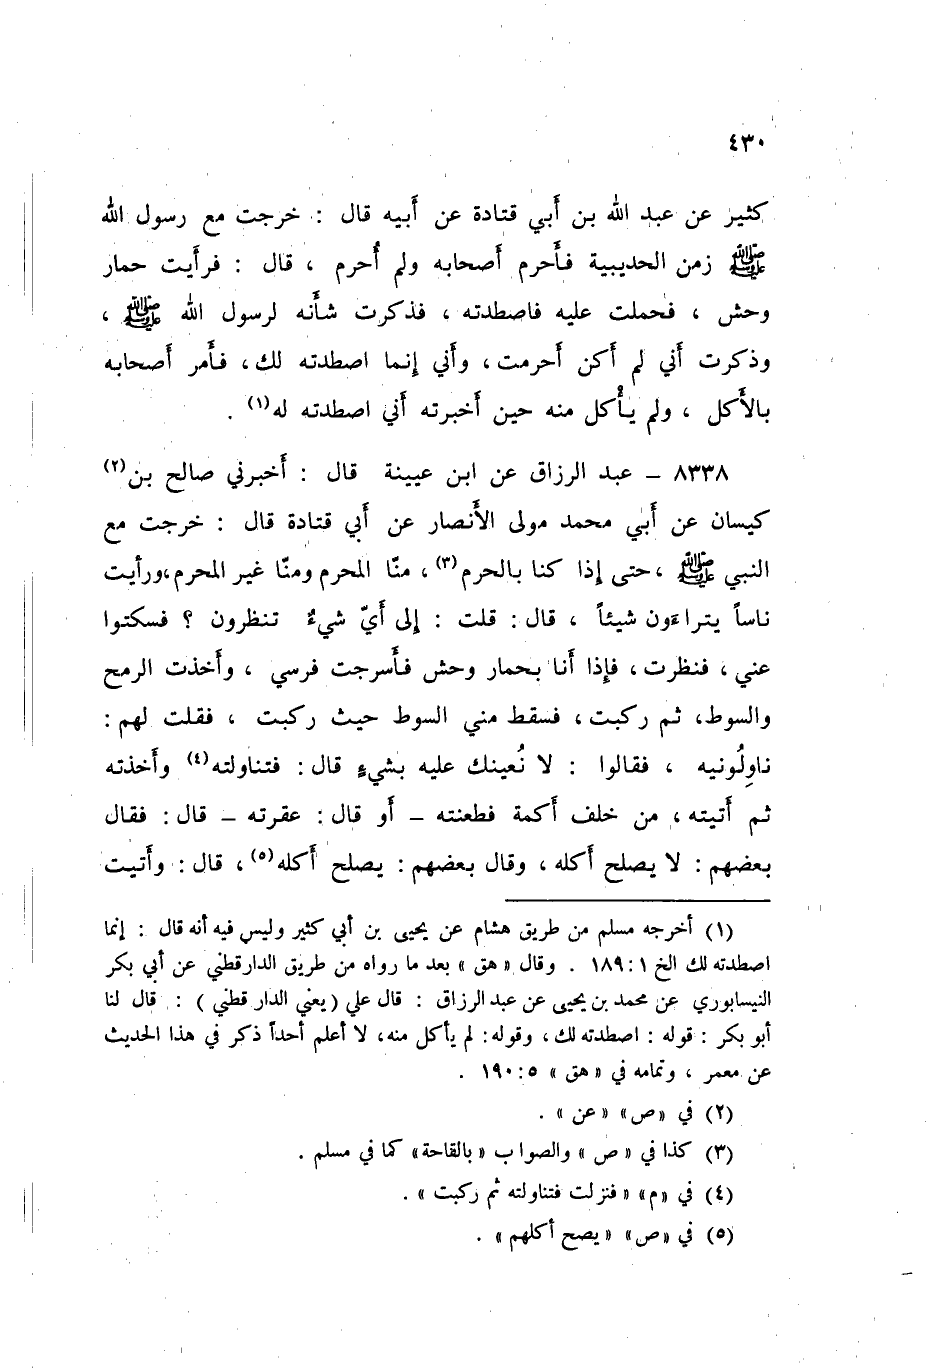 ٤٣٠
كثير عن عبد الله بن أَبي قتادة عن أَبيه قال : خرجت مع رسول الله
ﷺ زمن الحديبية فأَحرم أَصحابه ولم أُحرم ، قال : فرأَيت حمار
وحش ، فحملت عليه فاصطدته ، فذكرت شأْنه لرسول الله ﷺ ،
وذكرت أَني لم أَكن أَحرمت ، وأَني إِنما اصطدته لك ، فأَمر أَصحابه
بالأَكل ، ولم يأْكل منه حين أَخبرته أَني اصطدته له(١) .
٨٣٣٨ – عبد الرزاق عن ابن عيينة قال : أَخبرني صالح بن(٢)
كيسان عن أَبي محمد مولى الأَنصار عن أَبي قتادة قال : خرجت مع
النبي ﷺ ، حتى إِذا كنا بالحرم(٣) ، منّا المحرم ومنّا غير المحرم ، ورأَيت
ناساً يتراءَون شيئاً ، قال : قلت : إِلى أَيّ شيءٌ تنظرون ؟ فسكتوا
عني ، فنظرت ، فإِذا أَنا بحمار وحش فأَسرجت فرسي ، وأَخذت الرمح
والسوط ، ثم ركبت ، فسقط مني السوط حيث ركبت ، فقلت لهم :
ناوِلُونيه ، فقالوا : لا نُعينك عليه بشيءٍ قال : فتناولته(٤) وأَخذته
ثم أَتيته ، من خلف أَكمة فطعنته – أَو قال : عقرته – قال : فقال
بعضهم : لا يصلح أَكله ، وقال بعضهم : يصلح أَكله(٥) ، قال : وأَتيت
(١) أخرجه مسلم من طريق هشام عن يحيى بن أبي كثير وليس فيه أنه قال : إنما
اصطدته لك الخ ١ : ١٨٩ . وقال « هق » بعد ما رواه من طريق الدارقطني عن أبي بكر
النيسابوري عن محمد بن يحيى عن عبد الرزاق : قال علي ( يعني الدار قطني ) : قال لنا
أبو بكر : قوله : اصطدته لك ، وقوله : لم يأكل منه ، لا أعلم أحداً ذكر في هذا الحديث
عن معمر ، وتمامه في « هق » ٥ : ١٩٠ .
(٢) في « ص » « عن » .
(٣) كذا في « ص » والصواب « بالقاحة » كما في مسلم .
(٤) في « م » « فنزلت فتناولته ثم ركبت » .
(٥) في « ص » « يصح أكلهم » .